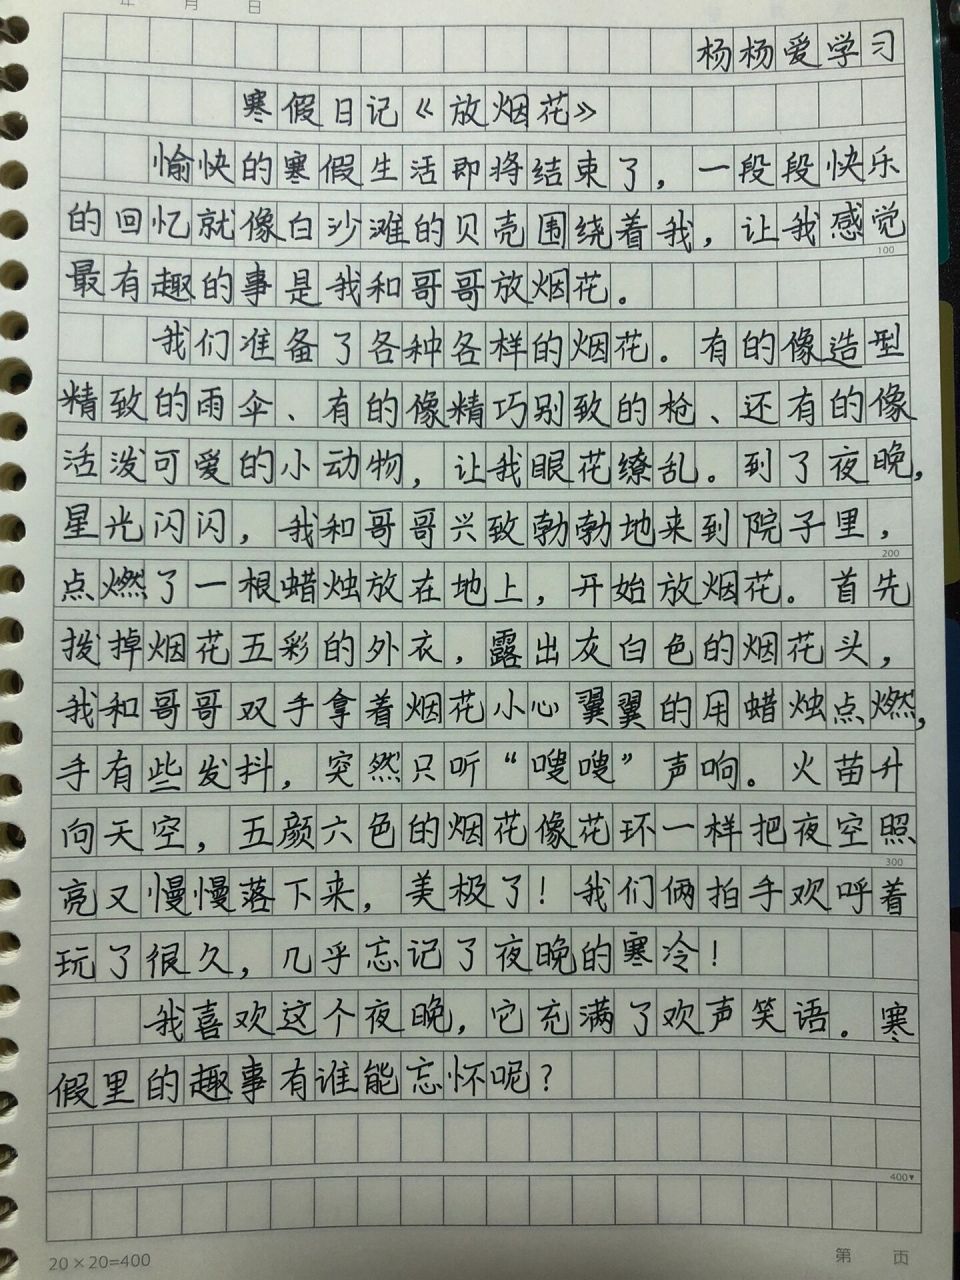 年 月 日
杨杨爱学习
寒假日记《放烟花》
愉快的寒假生活即将结束了，一段段快乐
的回忆就像白沙滩的贝壳围绕着我，让我感觉
100
最有趣的事是我和哥哥放烟花。
我们准备了各种各样的烟花。有的像造型
精致的雨伞、有的像精巧别致的枪、还有的像
活泼可爱的小动物，让我眼花缭乱。到了夜晚，
星光闪闪，我和哥哥兴致勃勃地来到院子里，
200
点燃了一根蜡烛放在地上，开始放烟花。首先
拨掉烟花五彩的外衣，露出灰白色的烟花头，
我和哥哥双手拿着烟花小心翼翼的用蜡烛点燃，
手有些发抖，突然只听“嗖嗖”声响。火苗升
向天空，五颜六色的烟花像花环一样把夜空照
300
亮又慢慢落下来，美极了！我们俩拍手欢呼着
玩了很久，几乎忘记了夜晚的寒冷！
我喜欢这个夜晚，它充满了欢声笑语。寒
假里的趣事有谁能忘怀呢？
400▼
20×20=400 第 页